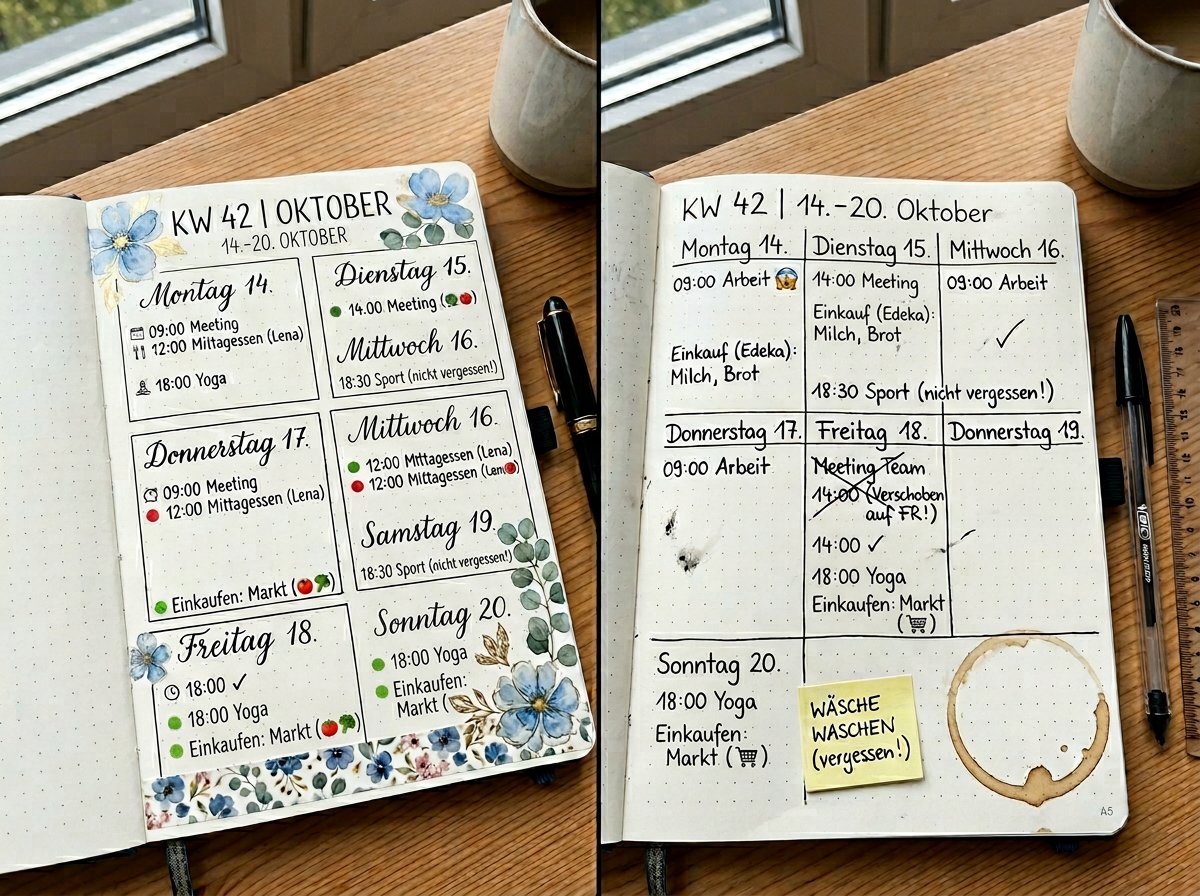 KW 42 | OKTOBER
14.-20. OKTOBER
Montag 14.
09:00 Meeting
12:00 Miltagessen (Lena)
18:00 Yoga
Dienstag 15.
14.00 Meeting (🥦🍅)
Mittwoch 16.
18:30 Sport (nicht vergessen!)
Donnerstag 17.
09:00 Meeting
12:00 Mittagessen (Lena)
Einkaufen: Markt (🍅🥦)
Mittwoch 16.
12:00 Mıttagessen (Lena)
12:00 Mittagessen (Len
Samstag 19.
18:30 Sport (nicht vergessen!)
Freitag 18.
18:00 ✓
18:00 Yoga
Einkaufen: Markt (🍅🥦)
Sonntag 20.
18:00 Yoga
Einkaufen:
Markt (
KW 42 | 14.-20. Oktober
Montag 14.
09:00 Arbeit 😱
Einkauf (Edeka):
Milch, Brot
Dienstag 15.
14:00 Meeting
Einkauf (Edeka):
Milch, Brot
18:30 Sport (nicht vergessen!)
Mittwoch 16.
09:00 Arbeit
✓
Donnerstag 17.
09:00 Arbeit
Freitag 18.
Meeting Team
14:00 (Verschoben
auf FR!)
14:00 ✓
18:00 Yoga
Einkaufen: Markt
(🛒)
Donnerstag 19.
Sonntag 20.
18:00 Yoga
Einkaufen:
Markt (🛒)
WÄSCHE
WASCHEN
(vergessen!)
A5